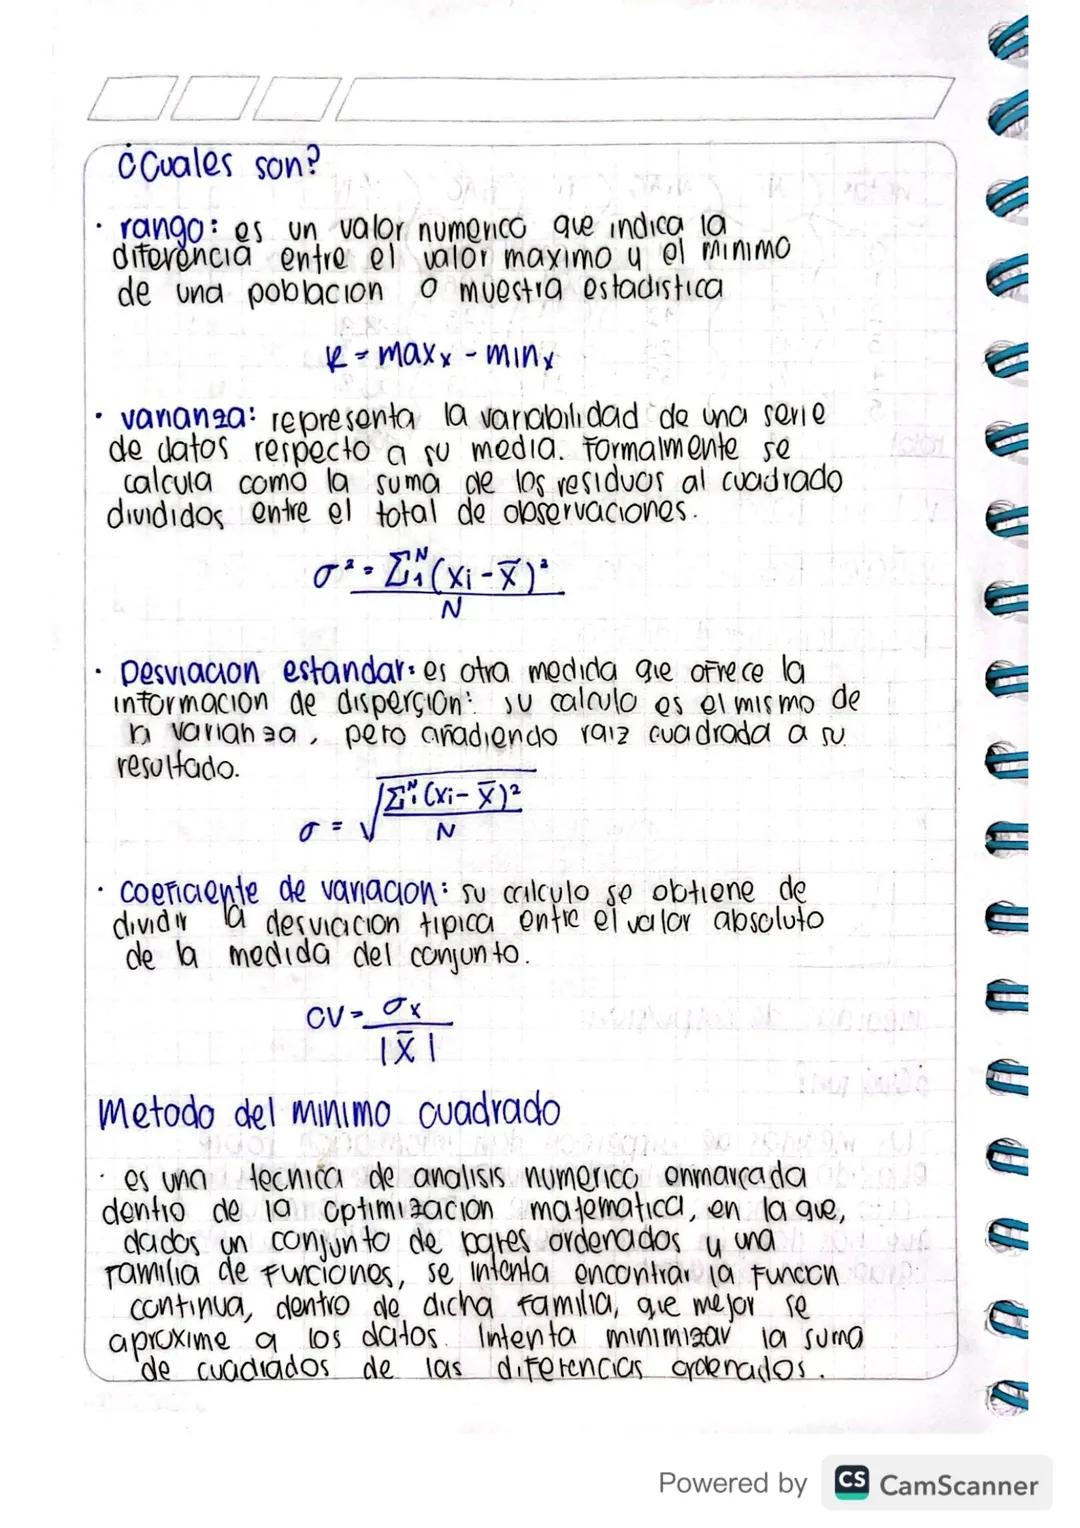 ¿Cuales son?
· rango: es un valor numerico que indica la
diferencia entre el valor maximo y el minimo
de una poblacion o muestra estadistica
R = maxx - minx
· varianza: representa la variabilidad de una serie
de datos respecto a su media. Formalmente se
calcula como la suma de los residuos al cuadrado
divididos entre el total de observaciones.
σ² = Σ₁ᴺ(xi - x̄)²
N
· Desviacion estandar: es otra medida que ofrece la
informacion de disperción: su calculo es el mismo de
la varianza, pero añadiendo raiz cuadrada a su
resultado.
σ = √Σ₁ᴺ(xi - x̄)²
N
· coeficiente de variacion: su calculo se obtiene de
dividir la desviacion tipica entre el valor absoluto
de la medida del conjunto.
CV = σx
|x̄|
Metodo del minimo cuadrado
· es una tecnica de analisis numerico enmarcada
dentro de la optimización matematica, en la que,
dados un conjunto de pares ordenados y una
familia de funciones, se intenta encontrar la funcon
continua, dentro de dicha familia, que mejor se
aproxime a los datos. Intenta minimizar la suma
de cuadrados de las diferencias ordenados.
Powered by CS CamScanner